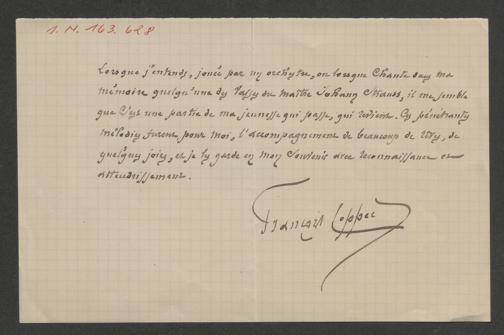 I. N. 163.628
Lorsque j'entends, jouée par un orchestre, ou lorsque chante dans ma
mémoire quelqu'une des valses du maître Johann Strauss, il me semble
que c'est une partie de ma jeunesse qui passe, qui revient. Ces pénétrantes
mélodies furent pour moi, l'accompagnement de beaucoup de rêves, de
quelques joies, et je les garde en mon souvenir avec reconnaissance et
attendrissement.
François Coppée